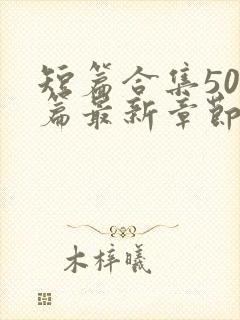 短篇合集50
篇最新章節
木梓曦